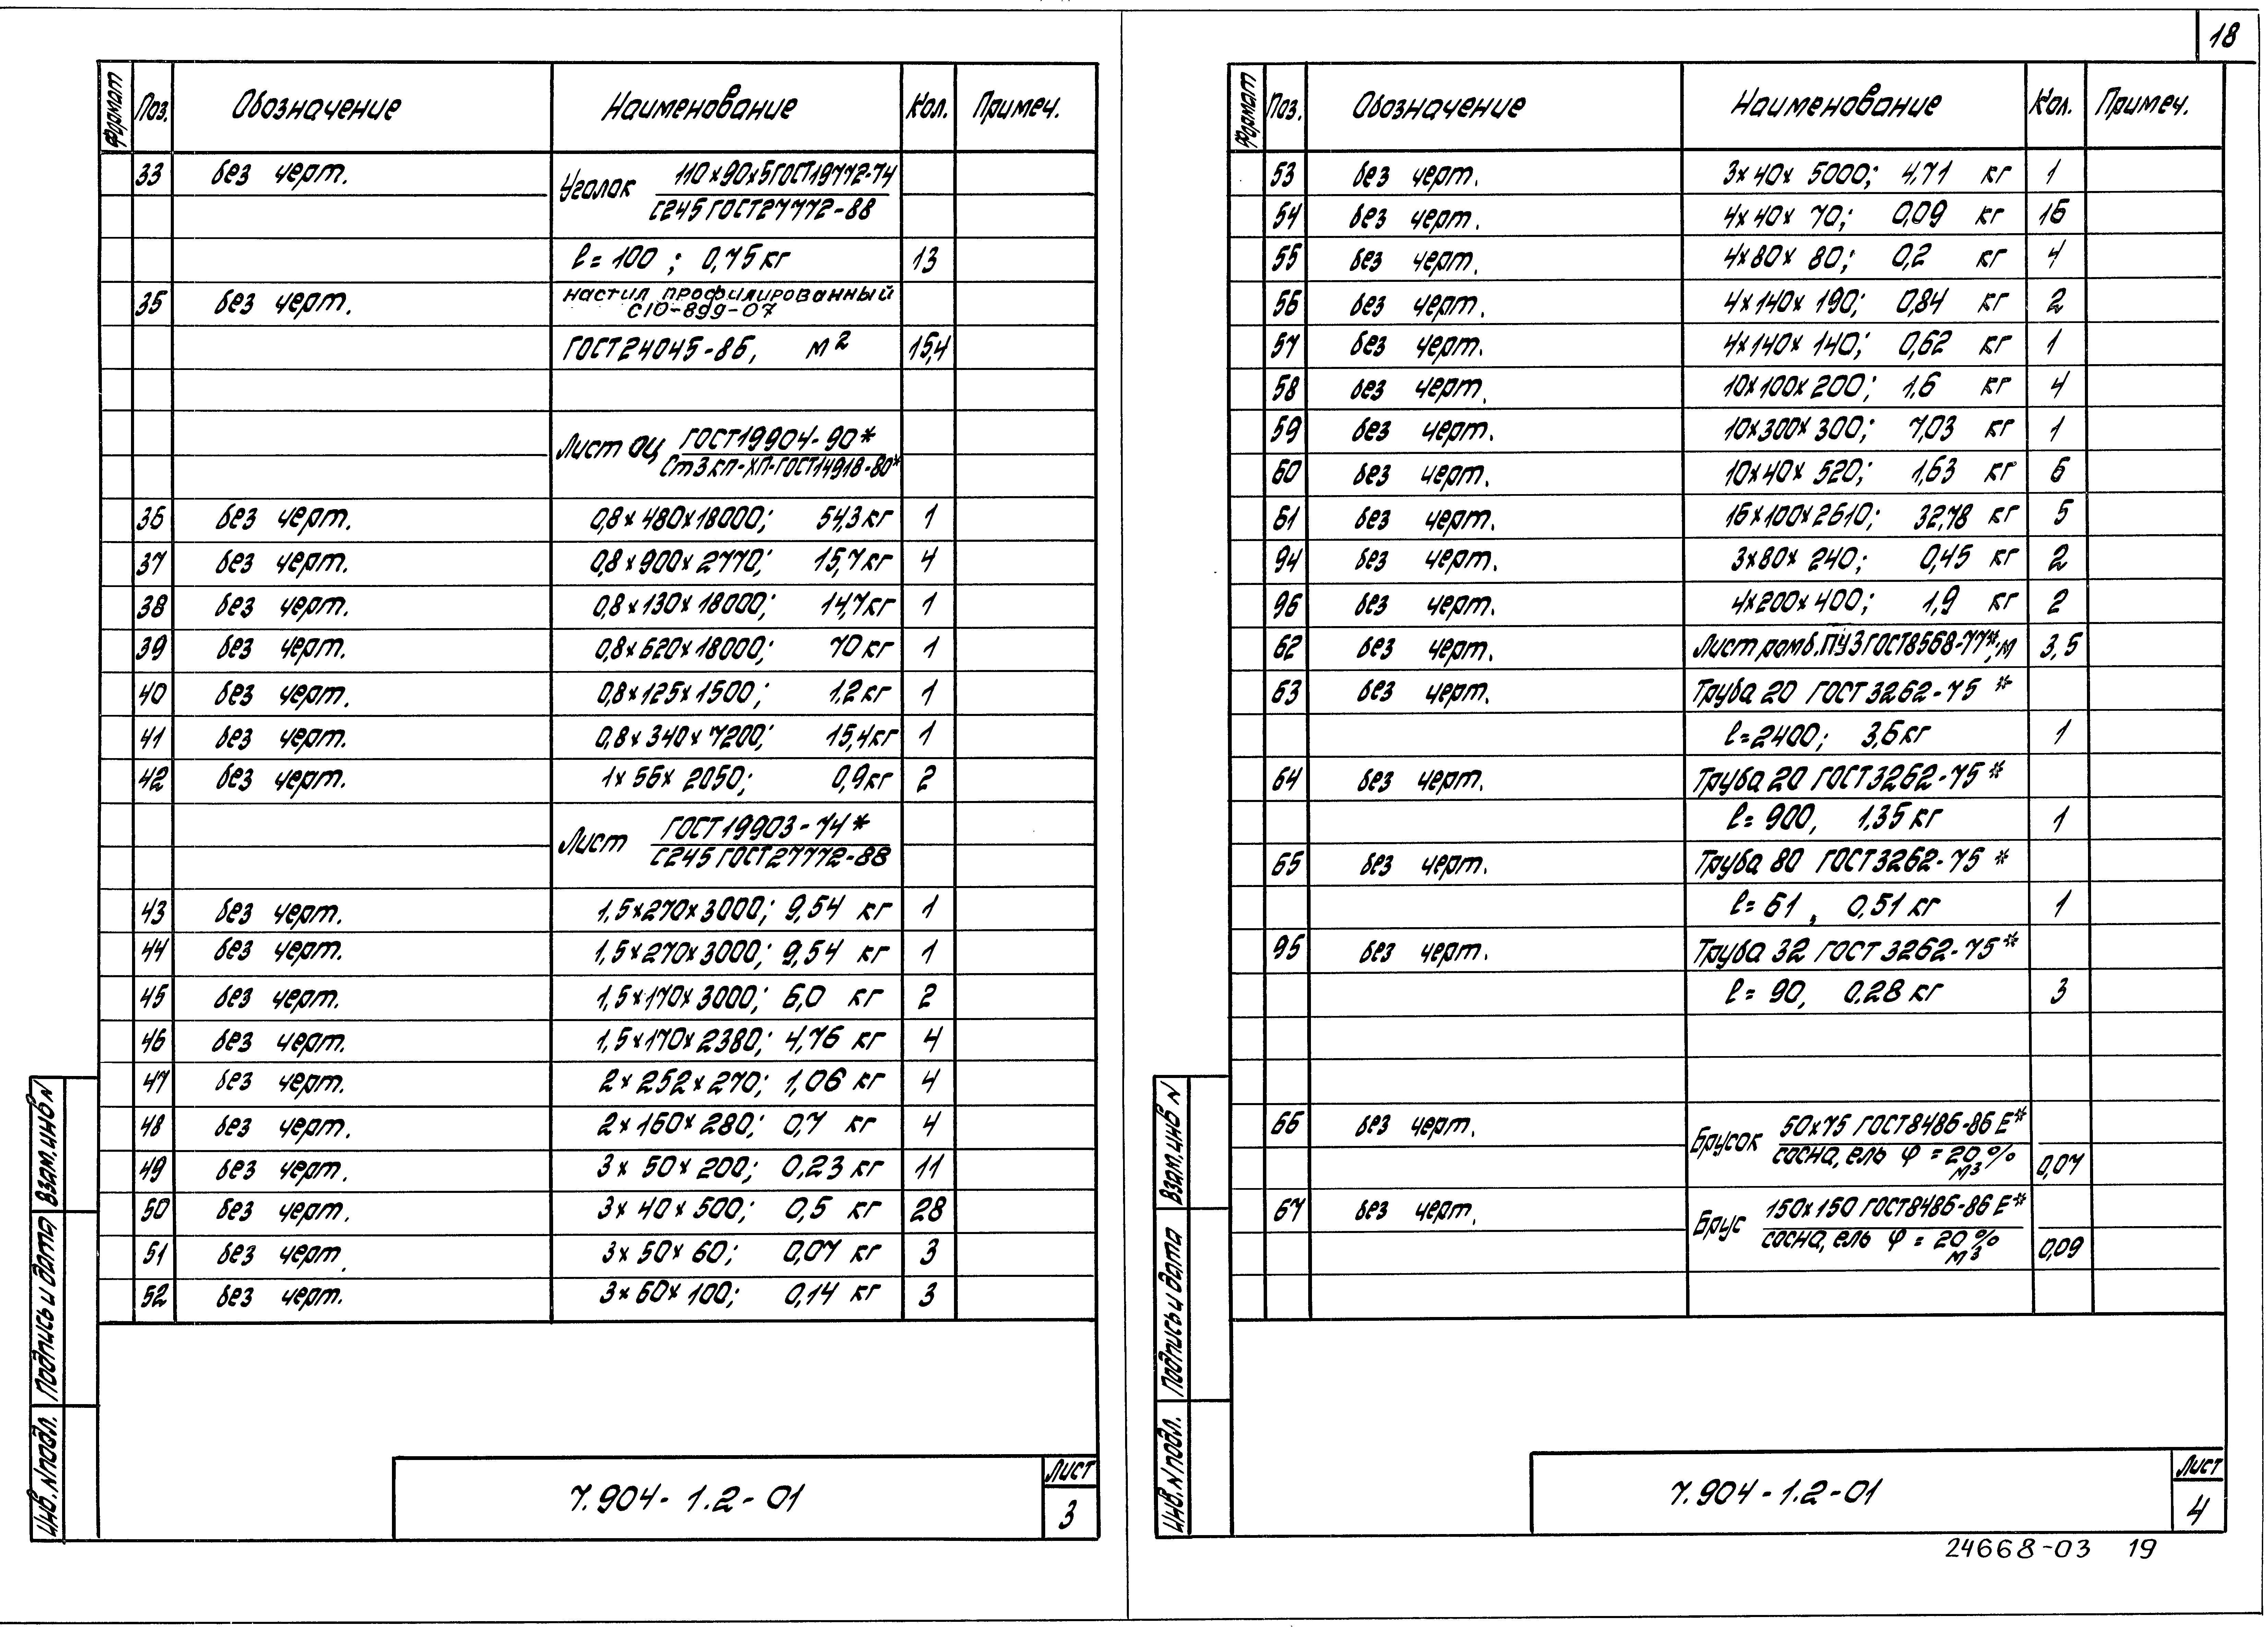 18
Формат Поз. Обозначение Наименование Кол. Примеч.
33 без черт. Уголок 110×90×5 ГОСТ19772-74
С245 ГОСТ27772-88
ℓ=100; 0,75кг 13
35 без черт. настил профилированный
С10-899-07
ГОСТ24045-86, м2 15,4
Лист ОЦ ГОСТ19904-90*
Ст3кп-ХП-ГОСТ14918-80*
36 без черт. 0,8×480×18000; 54,3кг 1
37 без черт. 0,8×900×2770; 15,7кг 4
38 без черт. 0,8×130×18000; 14,7кг 1
39 без черт. 0,8×620×18000; 70кг 1
40 без черт. 0,8×125×1500; 1,2кг 1
41 без черт. 0,8×340×7200; 15,4кг 1
42 без черт. 1×56×2050; 0,9кг 2
Лист ГОСТ19903-74*
С245 ГОСТ27772-88
43 без черт. 1,5×270×3000; 9,54 кг 1
44 без черт. 1,5×270×3000; 9,54 кг 1
45 без черт. 1,5×170×3000; 6,0 кг 2
46 без черт. 1,5×170×2380; 4,76 кг 4
47 без черт. 2×252×270; 1,06 кг 4
48 без черт. 2×160×280; 0,7 кг 4
49 без черт. 3×50×200; 0,23 кг 11
50 без черт. 3×40×500; 0,5 кг 28
51 без черт. 3×50×60; 0,07 кг 3
52 без черт. 3×60×100; 0,14 кг 3
Инв.Nподл. Подпись и дата Взам.инв N
7.904-1.2-01
Лист
3
Формат Поз. Обозначение Наименование Кол. Примеч.
53 без черт. 3×40×5000; 4,71 кг 1
54 без черт. 4×40×70; 0,09 кг 16
55 без черт. 4×80×80; 0,2 кг 4
56 без черт. 4×140×190; 0,84 кг 2
57 без черт. 4×140×140; 0,62 кг 1
58 без черт. 10×100×200; 1,6 кг 4
59 без черт. 10×300×300; 7,03 кг 1
60 без черт. 10×40×520; 1,63 кг 6
61 без черт. 16×100×2610; 32,78 кг 5
94 без черт. 3×80×240; 0,45 кг 2
96 без черт. 4×200×400; 1,9 кг 2
62 без черт. Лист ромб.ПУ3ГОСТ8568-77*,м 3,5
63 без черт. Труба 20 ГОСТ3262-75*
ℓ=2400; 3,6кг 1
64 без черт. Труба 20 ГОСТ3262-75*
ℓ=900, 1,35кг 1
65 без черт. Труба 80 ГОСТ3262-75*
ℓ=61, 0,51кг 1
95 без черт. Труба 32 ГОСТ3262-75*
ℓ=90, 0,28кг 3
66 без черт. Брусок 50×75 ГОСТ8486-86Е*
сосна, ель φ=20%
м3 0,07
67 без черт. Брус 150×150 ГОСТ8486-86Е*
сосна, ель φ=20%
м3 0,09
Инв.Nподл. Подпись и дата Взам.инв N
7.904-1.2-01
Лист
4
24668-03 19